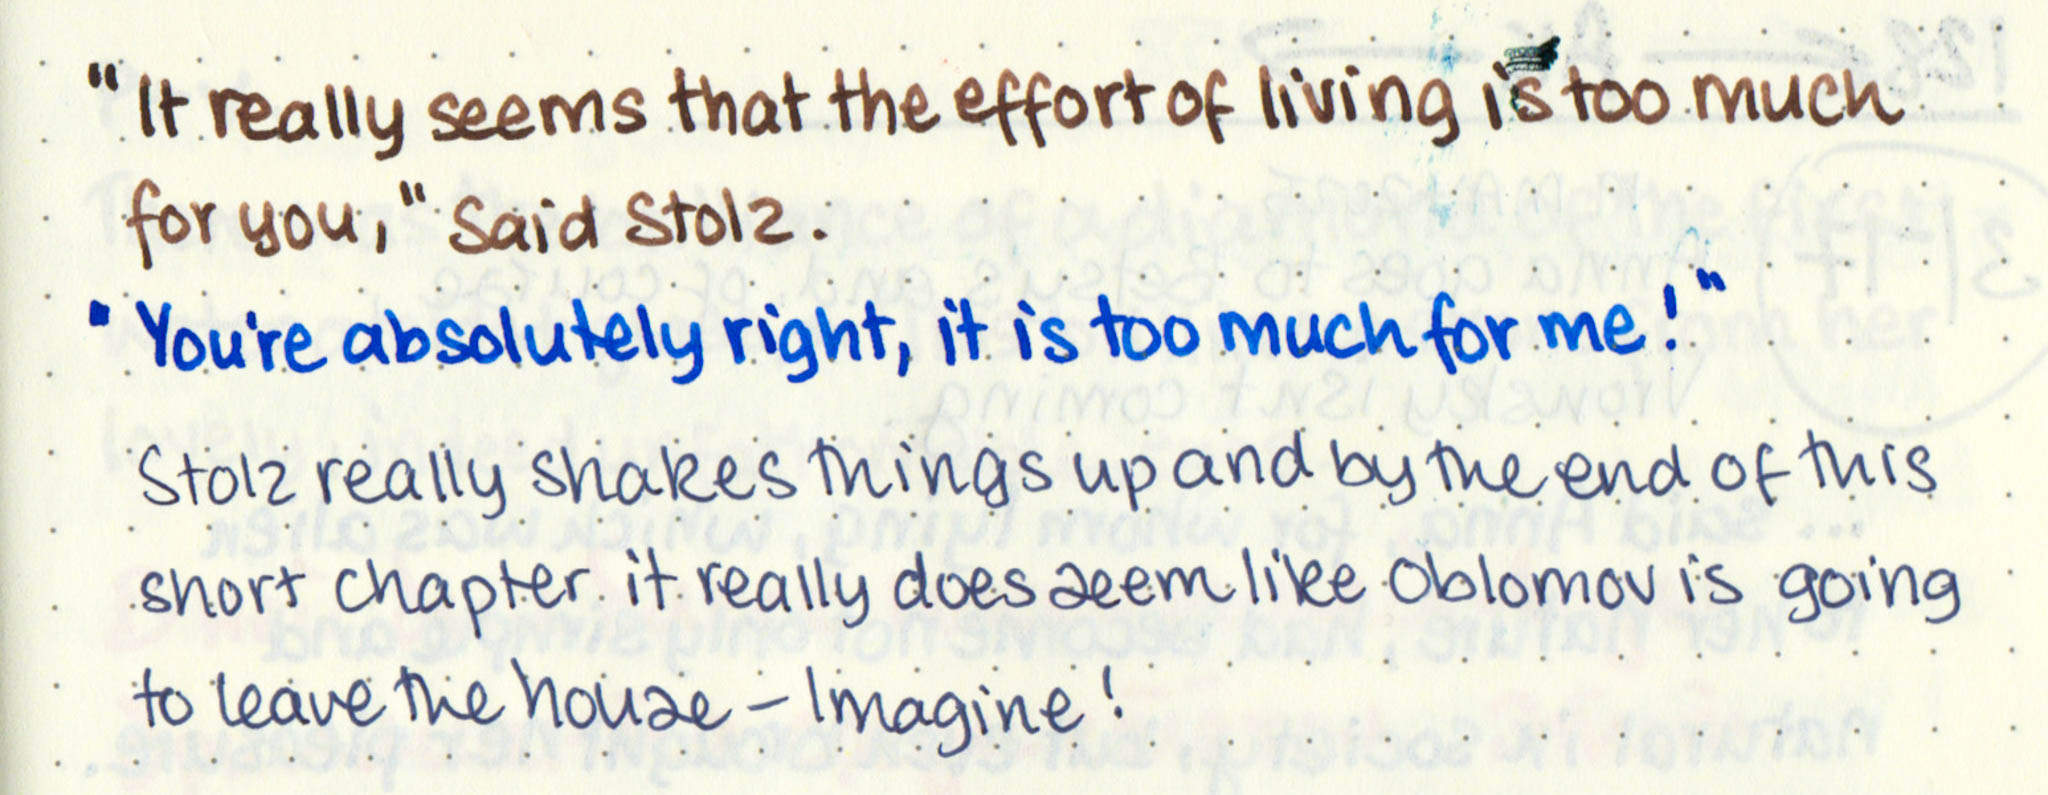 "It really seems that the effort of living is too much
for you," said Stolz.
"You're absolutely right, it is too much for me!"
Stolz really shakes things up and by the end of this
short chapter it really does seem like Oblomov is going
to leave the house – Imagine!